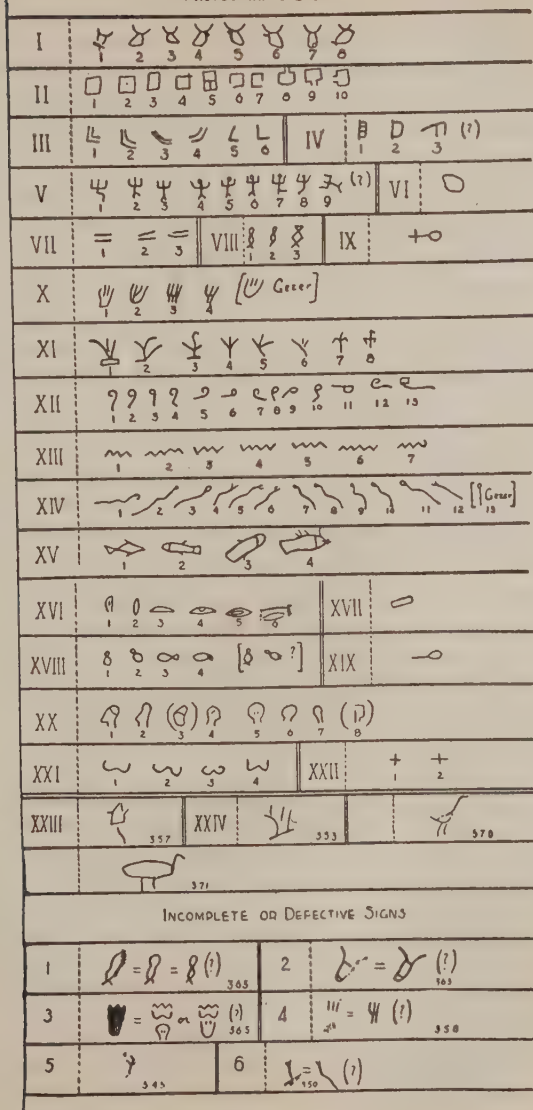 I 1 2 3 4 5 6 7 8
II 1 2 3 4 5 6 7 8 9 10
III 1 2 3 4 5 6 IV 1 2 3 (?)
V 1 2 3 4 5 6 7 8 9 (?) VI
VII 1 2 3 VIII 1 2 3 IX
X 1 2 3 4 [ Gezer]
XI 1 2 3 4 5 6 7 8
XII 1 2 3 4 5 6 7 8 9 10 11 12 13
XIII 1 2 3 4 5 6 7
XIV 1 2 3 4 5 6 7 8 9 10 11 12 [ Gezer] 13
XV 1 2 3 4
XVI 1 2 3 4 5 6 XVII
XVIII 1 2 3 4 [ ?] XIX
XX 1 2 (3) 4 5 6 7 (8)
XXI 1 2 3 4 XXII 1 2
XXIII 357 XXIV 353 370
371
INCOMPLETE OR DEFECTIVE SIGNS
1 = = (?) 363 2 = (?) 363
3 = or (?) 365 4 = (?) 358
5 345 6 = (?) 350